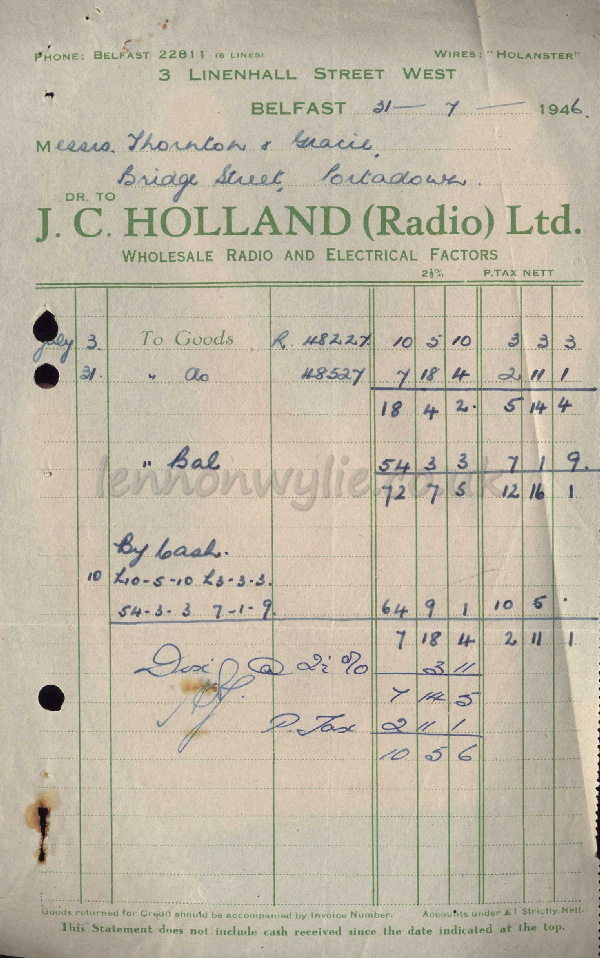 PHONE: BELFAST 22811 (6 LINES) WIRES: "HOLANSTER"
3 LINENHALL STREET WEST
BELFAST 31 — 7 — 1946.
Messrs. Thornton & Gracie,
Bridge Street, Portadown.
DR. TO
J. C. HOLLAND (Radio) Ltd.
WHOLESALE RADIO AND ELECTRICAL FACTORS
2½% P.TAX NETT
July 3 To Goods R 48227 10 5 10 3 3 3
31 " do 48527 7 18 4 2 11 1
18 4 2 5 14 4
" Bal 54 3 3 7 1 9
lennonwylie.co.uk
72 7 5 12 16 1
By Cash.
10 £10-5-10 £3-3-3.
54-3-3 7-1-9 64 9 1 10 5 .
7 18 4 2 11 1
@ 2½ % 3 11
7 14 5
P. Tax 2 11 1
10 5 6
Goods returned for Credit should be accompanied by Invoice Number. Accounts under £1 Strictly Nett
This Statement does not include cash received since the date indicated at the top.